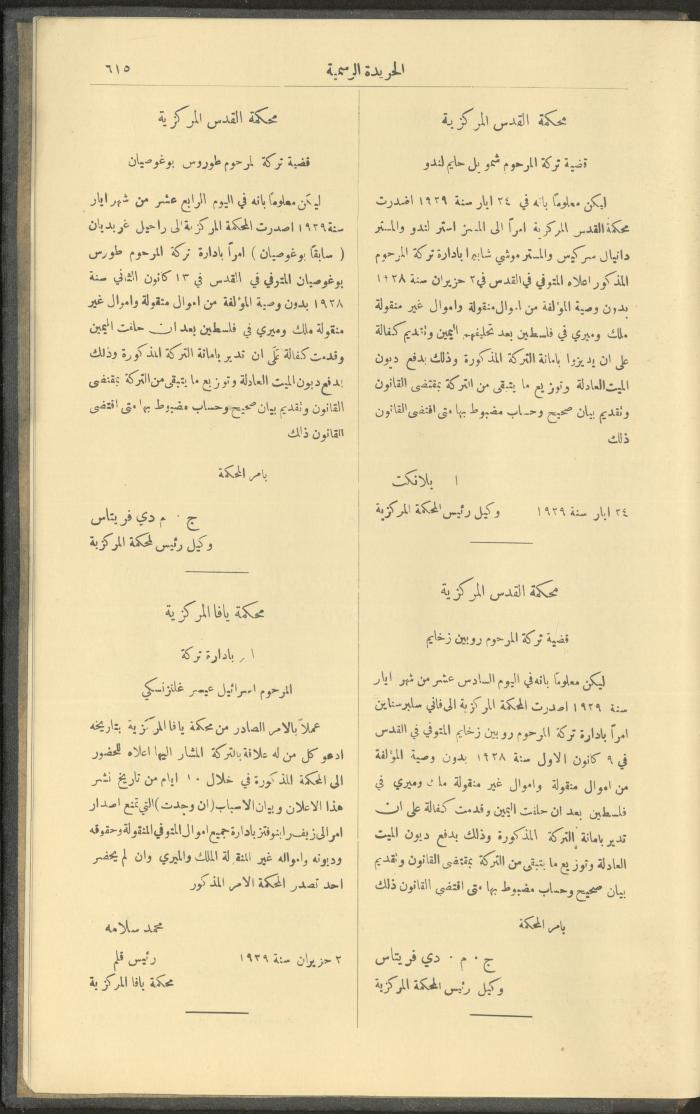 الجريدة الرسمية
٦١٥
محكمة القدس المركزية
قضية تركة المرحوم شموئيل حايم لندو
ليكن معلوماً بانه في ٢٤ ايار سنة ١٩٢٩ اصدرت
محكمة القدس المركزية امراً الى المسز استر لندو والمستر
دانيال سركيس والمستر موشي شابيرا بادارة تركة المرحوم
المذكور اعلاه المتوفي في القدس في ٢ حزيران سنة ١٩٢٨
بدون وصية المؤلفة من اموال منقولة واموال غير منقولة
ملك وميري في فلسطين بعد تحليفهم اليمين وتقديم كفالة
على ان يديروا بامانة التركة المذكورة وذلك بدفع ديون
الميت العادلة وتوزيع ما يتبقى من التركة بمقتضى القانون
وتقديم بيان صحيح وحساب مضبوط بها متى اقتضى القانون
ذلك
ا بلانكت
٢٤ ايار سنة ١٩٢٩ وكيل رئيس المحكمة المركزية
محكمة القدس المركزية
قضية تركة المرحوم روبين زخايم
ليكن معلوماً بانه في اليوم السادس عشر من شهر ايار
سنة ١٩٢٩ اصدرت المحكمة المركزية الى فاني سلبرستاين
امراً بادارة تركة المرحوم روبين زخايم المتوفي في القدس
في ٩ كانون الاول سنة ١٩٢٨ بدون وصية المؤلفة
من اموال منقولة واموال غير منقولة ملك وميري في
فلسطين بعد ان حلفت اليمين وقدمت كفالة على ان
تدير بامانة التركة المذكورة وذلك بدفع ديون الميت
العادلة وتوزيع ما يتبقى من التركة بمقتضى القانون وتقديم
بيان صحيح وحساب مضبوط بها متى اقتضى القانون ذلك
بامر المحكمة
ج ٠ م ٠ دي فريتاس
وكيل رئيس المحكمة المركزية
محكمة القدس المركزية
قضية تركة لمرحوم طوروس بوغوصيان
ليكن معلوماً بانه في اليوم الرابع عشر من شهر ايار
سنة ١٩٢٩ اصدرت المحكمة المركزية الى راحيل غريديان
( سابقاً بوغوصيان ) امراً بادارة تركة المرحوم طورس
بوغوصيان المتوفي في القدس في ١٣ كانون الثاني سنة
١٩٢٨ بدون وصية المؤلفة من اموال منقولة واموال غير
منقولة ملك وميري في فلسطين بعد ان حلفت اليمين
وقدمت كفالة على ان تدير بامانة التركة المذكورة وذلك
بدفع ديون الميت العادلة وتوزيع ما يتبقى من التركة بمقتضى
القانون وتقديم بيان صحيح وحساب مضبوط بها متى اقتضى
القانون ذلك
بامر المحكمة
ج ٠ م دي فريتاس
وكيل رئيس لمحكمة المركزية
محكمة يافا المركزية
امر بادارة تركة
المرحوم اسرائيل عيصر غلنزنسكي
عملاً بالامر الصادر من محكمة يافا المركزية بتاريخه
ادعو كل من له علاقة بالتركة المشار اليها اعلاه للحضور
الى المحكمة المذكورة في خلال ١٠ ايام من تاريخ نشر
هذا الاعلان وبيان الاسباب (ان وجدت) التي تمنع اصدار
امر الى زيف رابنوفتز بادارة جميع اموال المتوفي المنقولة وحقوقه
وديونه وامواله غير المنقولة الملك والميري وان لم يحضر
احد تصدر المحكمة الامر المذكور
محمد سلامه
٢ حزيران سنة ١٩٢٩ رئيس قلم
محكمة يافا المركزية